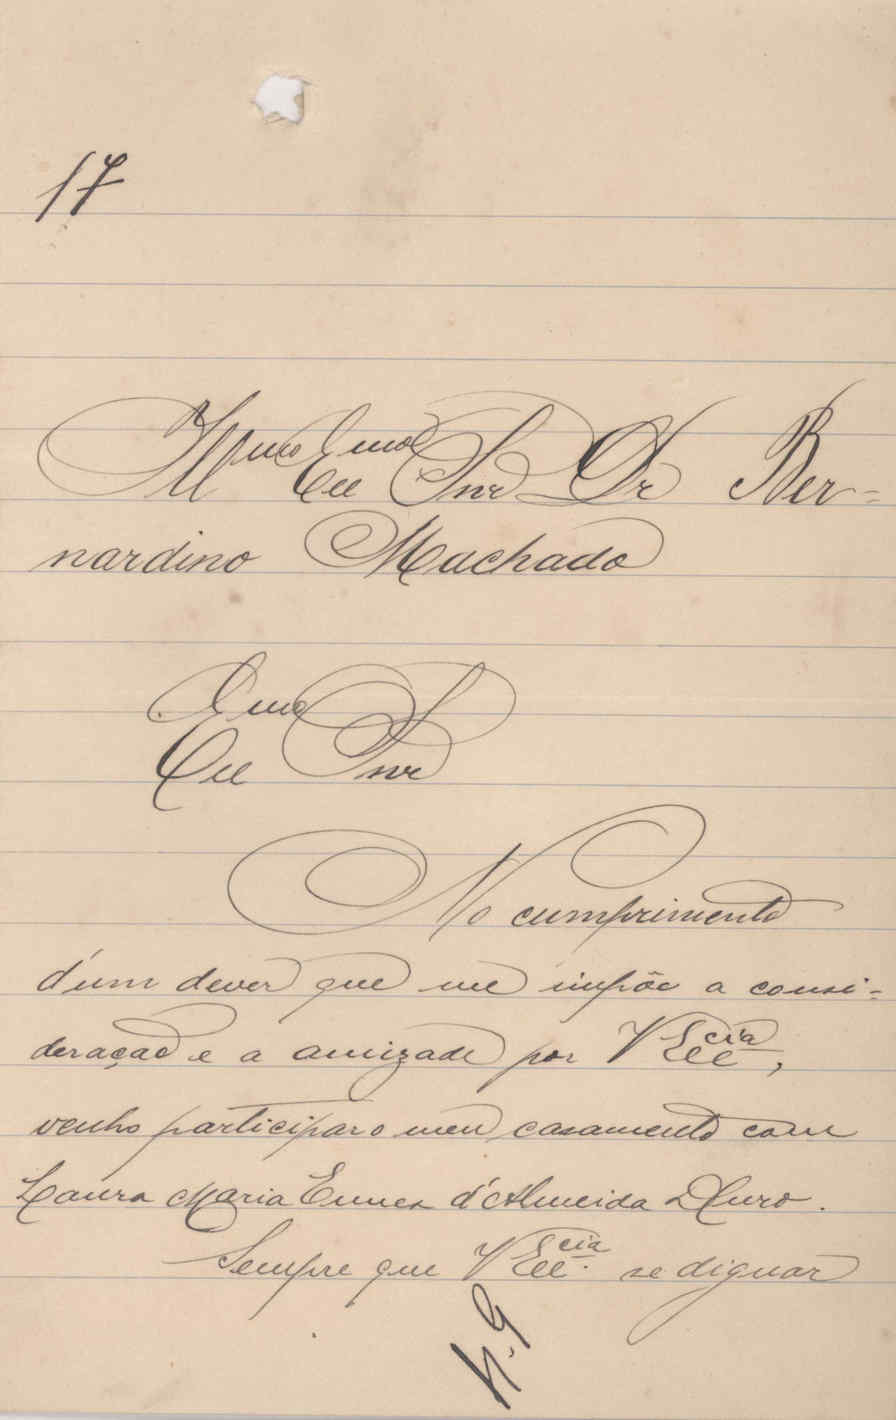 17
Illmo Exmo Snr Dr Ber=
nardino Machado
Exmo
Snr
No cumprimento
d'um dever que me impõe a consi=
deração e a amizade por V Excia,
venho participar o meu casamento com
Laura Maria Ennes d'Almeida
Sempre que V Excia. se dignar